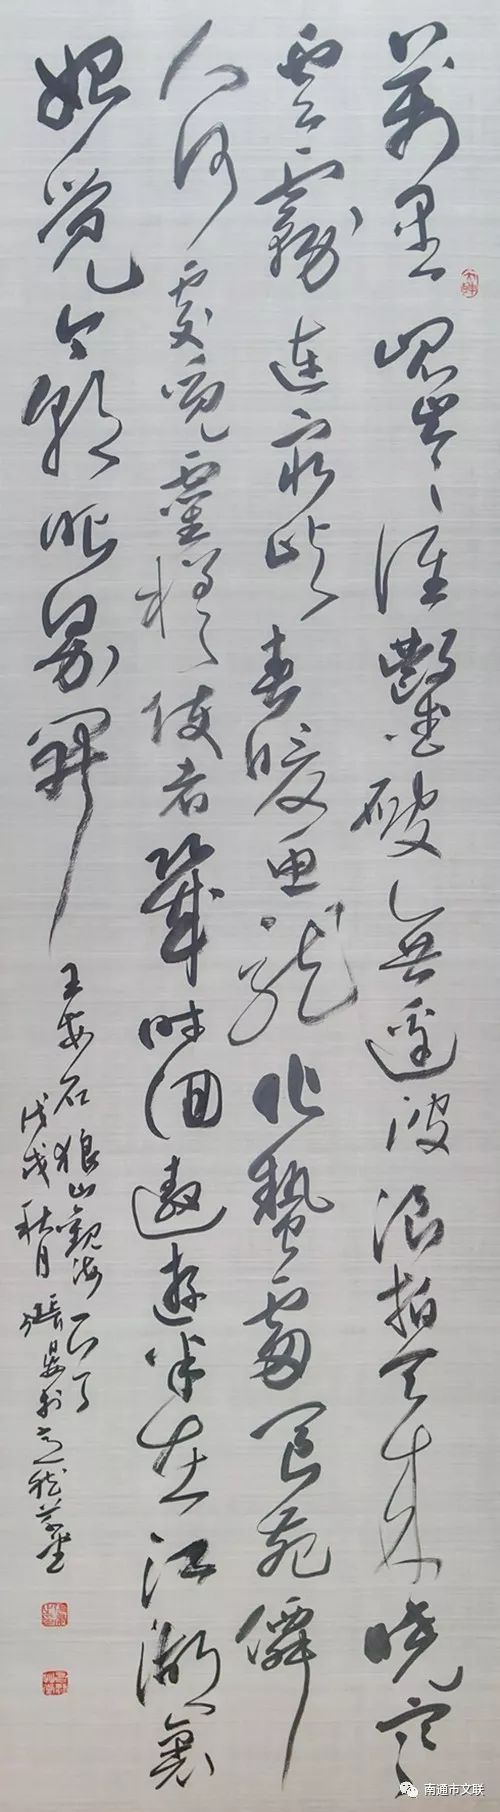 萬里崑崙誰鑿破無邊波浪拍天来曉寒
雲霧連窮屿春暖魚龍化蟄雷閬苑僊
人何處覓靈槎使者幾時回遨遊半在江湖裏
始覺今朝眼界開
王安石狼山觀海一首
戊戌秋月張
南通市文联